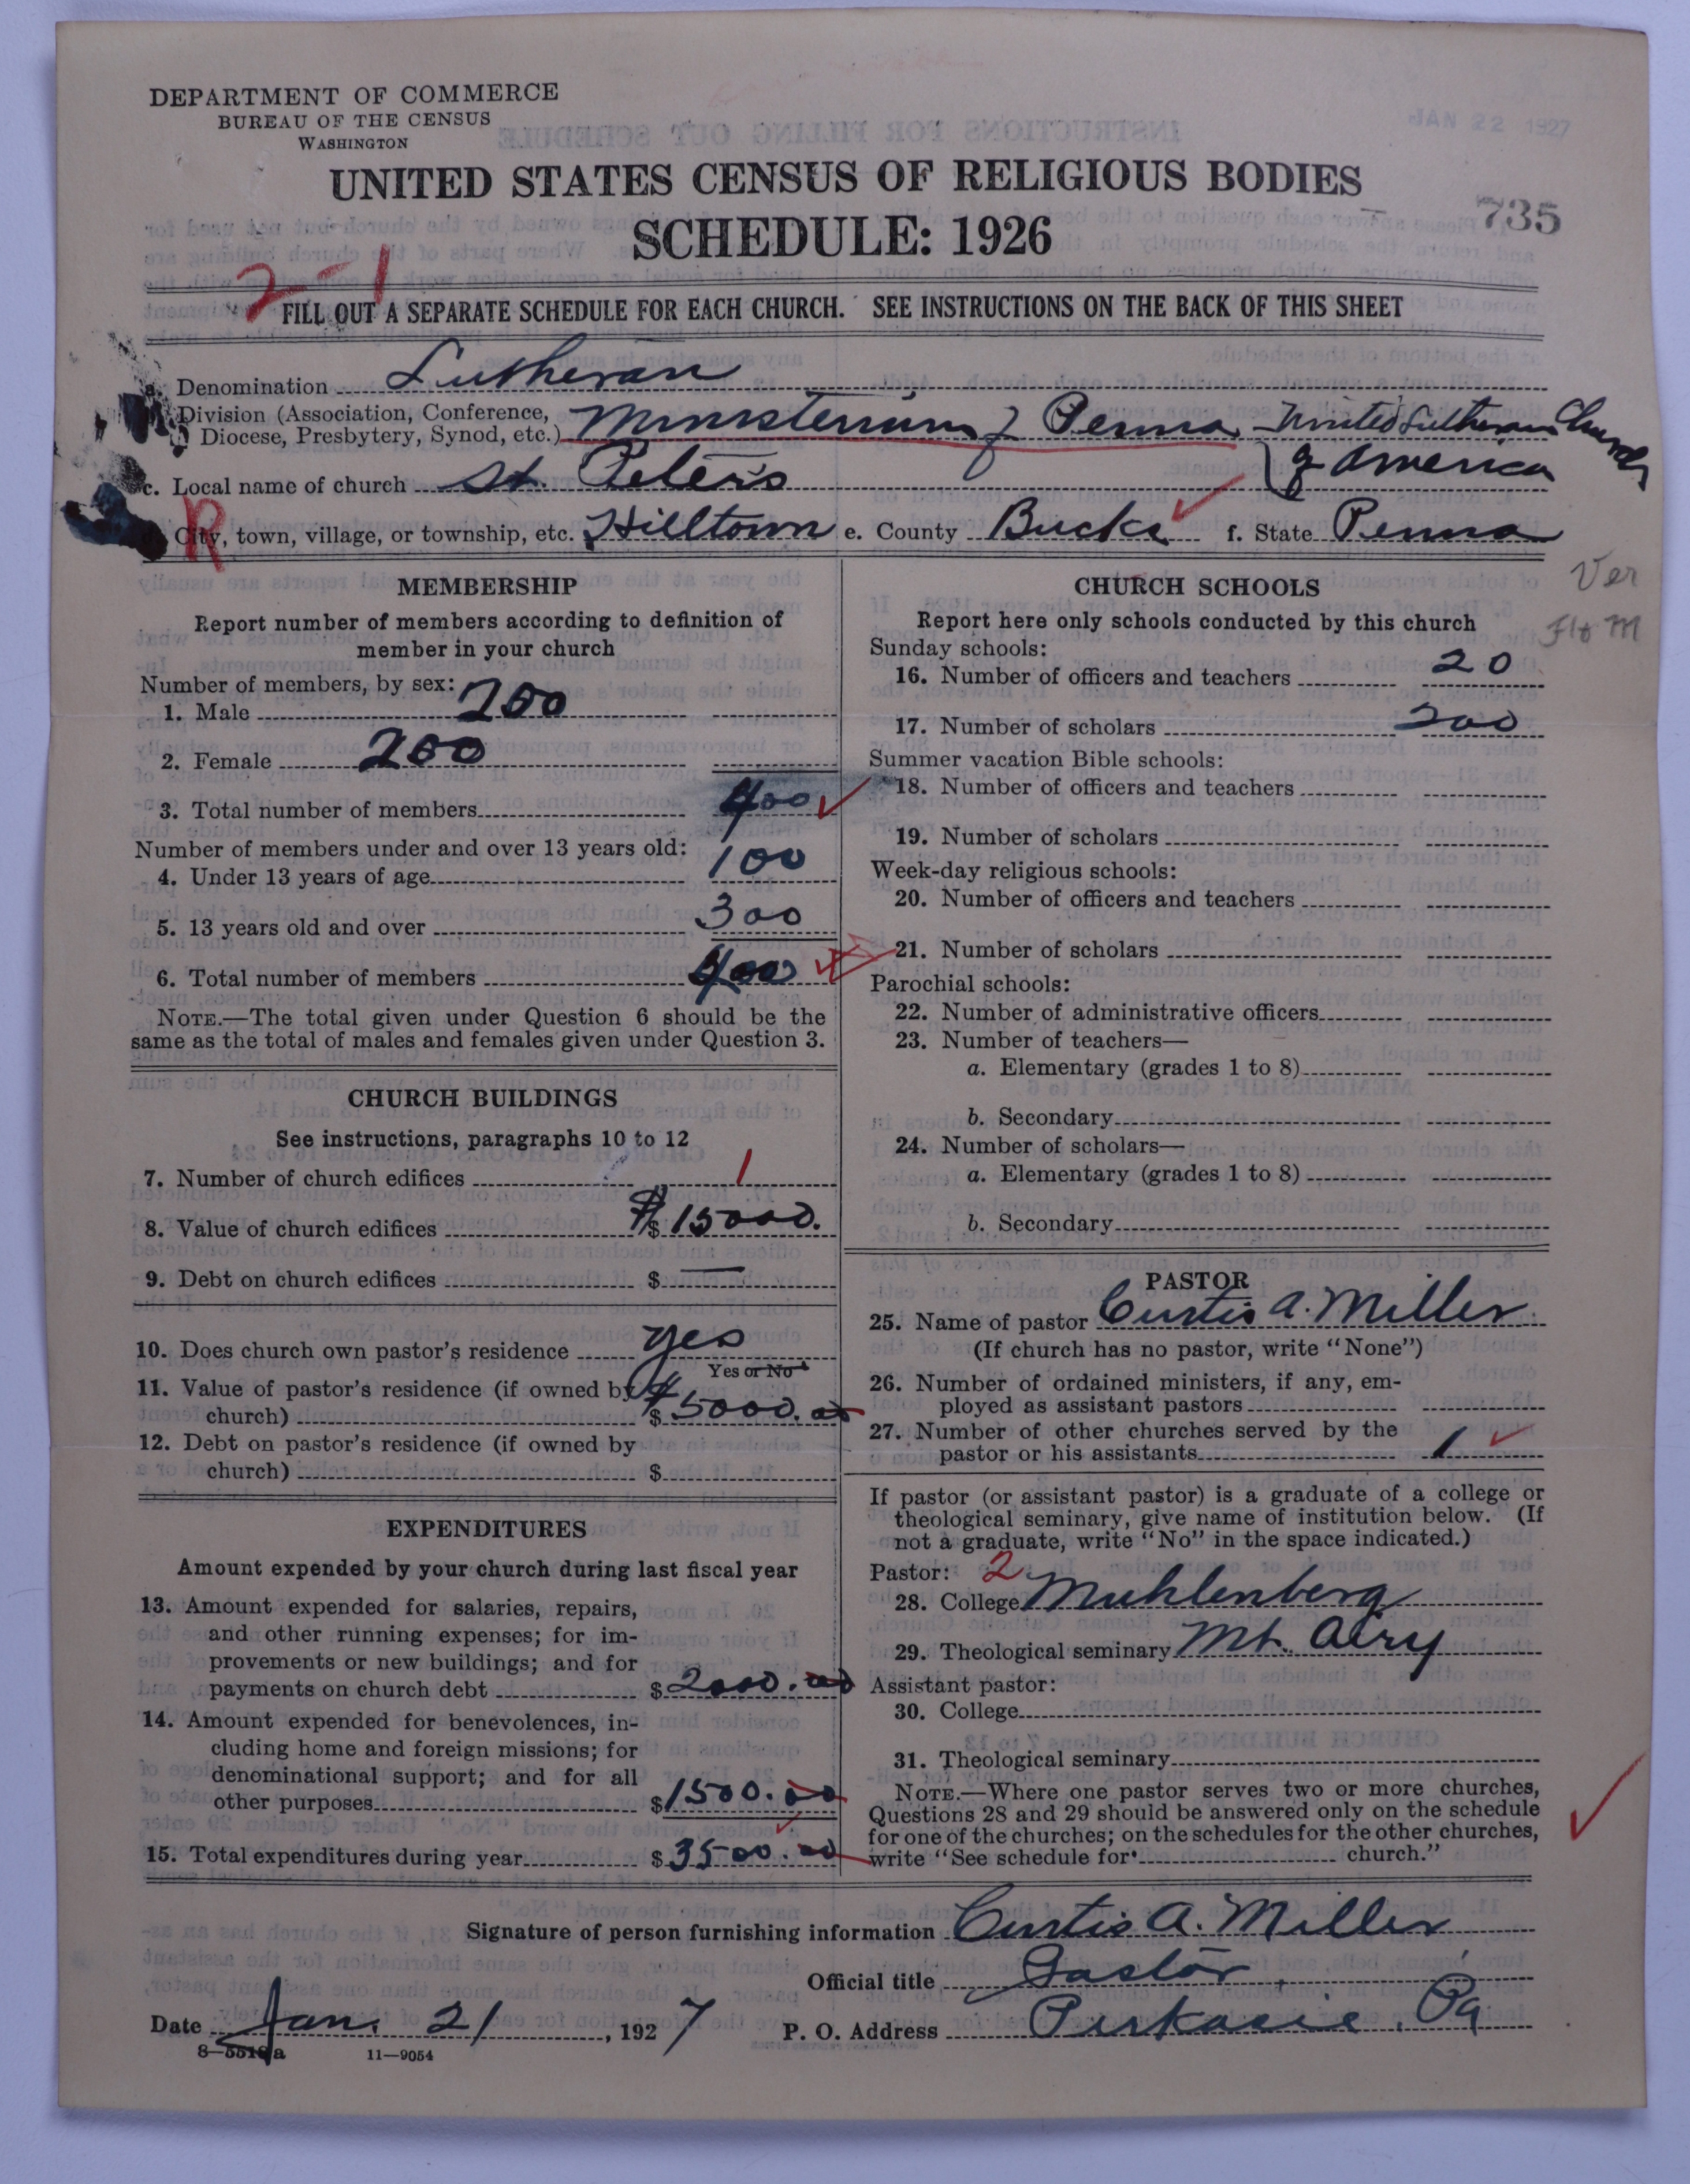 DEPARTMENT OF COMMERCE
BUREAU OF THE CENSUS
WASHINGTON
JAN 22 1927
UNITED STATES CENSUS OF RELIGIOUS BODIES
SCHEDULE: 1926
735
2-1
FILL OUT A SEPARATE SCHEDULE FOR EACH CHURCH. SEE INSTRUCTIONS ON THE BACK OF THIS SHEET
a. Denomination Lutheran
Division (Association, Conference,
Diocese, Presbytery, Synod, etc.) Ministerium of Penna - United Lutheran Church
of America
c. Local name of church St. Peter's
R
City, town, village, or township, etc. Hilltown e. County Bucks f. State Penna
Ver
Flo M
MEMBERSHIP
Report number of members according to definition of
member in your church
Number of members, by sex:
1. Male 200
2. Female 200
3. Total number of members 400
Number of members under and over 13 years old:
4. Under 13 years of age 100
5. 13 years old and over 300
6. Total number of members 400
NOTE.—The total given under Question 6 should be the
same as the total of males and females given under Question 3.
CHURCH BUILDINGS
See instructions, paragraphs 10 to 12
7. Number of church edifices 1
8. Value of church edifices $ $15000.
9. Debt on church edifices $ —
10. Does church own pastor's residence yes
Yes or No
11. Value of pastor's residence (if owned by
church) $ $5000.00
12. Debt on pastor's residence (if owned by
church) $
EXPENDITURES
Amount expended by your church during last fiscal year
13. Amount expended for salaries, repairs,
and other running expenses; for im-
provements or new buildings; and for
payments on church debt $2000.00
14. Amount expended for benevolences, in-
cluding home and foreign missions; for
denominational support; and for all
other purposes $1500.00
15. Total expenditures during year $3500.00
CHURCH SCHOOLS
Report here only schools conducted by this church
Sunday schools:
16. Number of officers and teachers 20
17. Number of scholars 200
Summer vacation Bible schools:
18. Number of officers and teachers
19. Number of scholars
Week-day religious schools:
20. Number of officers and teachers
21. Number of scholars
Parochial schools:
22. Number of administrative officers
23. Number of teachers—
a. Elementary (grades 1 to 8)
b. Secondary
24. Number of scholars—
a. Elementary (grades 1 to 8)
b. Secondary
PASTOR
25. Name of pastor Curtis A. Miller
(If church has no pastor, write "None")
26. Number of ordained ministers, if any, em-
ployed as assistant pastors
27. Number of other churches served by the
pastor or his assistants 1
If pastor (or assistant pastor) is a graduate of a college or
theological seminary, give name of institution below. (If
not a graduate, write "No" in the space indicated.)
Pastor: 2
28. College Muhlenberg
29. Theological seminary Mt. Airy
Assistant pastor:
30. College
31. Theological seminary
NOTE.—Where one pastor serves two or more churches,
Questions 28 and 29 should be answered only on the schedule
for one of the churches; on the schedules for the other churches,
write "See schedule for church."
Signature of person furnishing information Curtis A. Miller
Official title Pastor
Date Jan. 21, 1927 P. O. Address Perkasie, Pa
8—5518a 11—9054